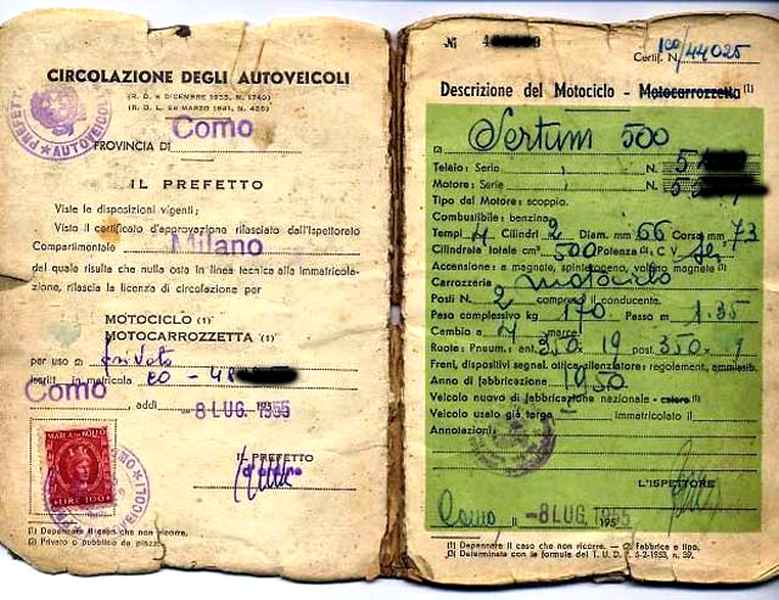 CIRCOLAZIONE DEGLI AUTOVEICOLI
(R. D. 8 DICEMBRE 1933, N. 1740)
(R. D. L. 28 MARZO 1941, N. 435)
PROVINCIA DI Como
IL PREFETTO
Viste le disposizioni vigenti;
Visto il certificato d'approvazione rilasciato dall'Ispettoreto
Compartimentale Milano
del quale risulta che nulla osta in linea tecnica alla immatricola-
zione, rilascia la licenza di circolazione per
MOTOCICLO (1)
MOTOCARROZZETTA (1)
per uso (2) privato
Iscritt in matricola CO - 48
Como, addì 8 LUG. 1955
MARCA DA BOLLO
LIRE 100
IL PREFETTO
d'ordine
(1) Depennare il caso che non ricorre.
(2) Privato o pubblico da piazza.
PREFETT
AUTOVEICOLI
COMO
AUTOVEICOLI
N.
Certif. N. 100/44025
Descrizione del Motociclo - Motocarrozzetta (1)
(2) Sertum 500
Telaio: Serie N. 5
Motore: Serie N. 5
Tipo del Motore: scoppio.
Combustibile: benzina
Tempi 4 Cilindri 2 Diam. mm 66 Corsa mm 73
Cilindrata totale cm³ 500 Potenza (3): C V
Accensione: a magnete, spinterogeno, volano magnete (1)
Carrozzeria motociclo
Posti N. 2 compreso il conducente.
Peso complessivo kg 170 Passo m 1.35
Cambio a 4 marce
Ruote: Pneum.: ant. 350 x 19 post. 350 x
Freni, dispositivi segnal. ottica, silenziatore: regolament. ammissib.
Anno di fabbricazione 1950
Veicolo nuovo di fabbricazione nazionale - estera (1)
Veicolo usato già targa Immatricolato il
Annotazioni
L'ISPETTORE
Como lì 8 LUG. 1955
(1) Depennare il caso che non ricorre. — (2) Fabbrica e tipo.
(3) Determinata con le formule del T. U. D. 5-2-1953, n. 39.